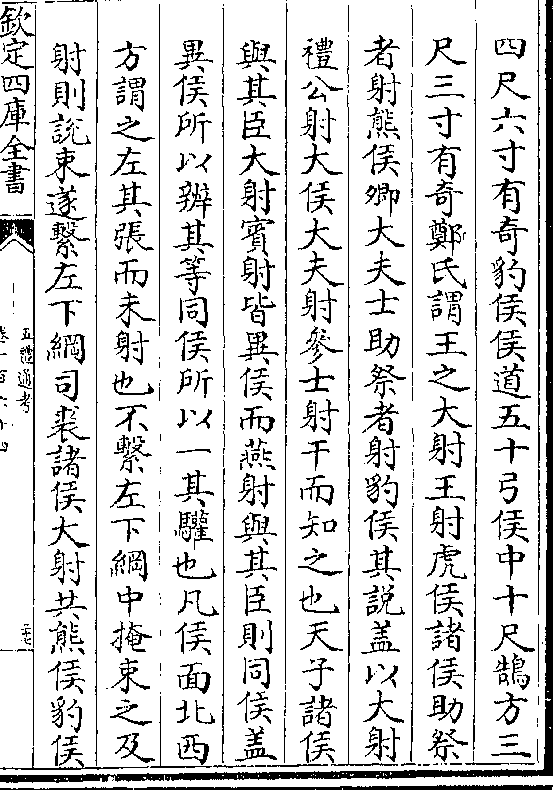 四尺六寸有奇豹侯侯道五十弓侯中十尺鵠方三
尺三寸有奇鄭氏謂王之大射王射虎侯諸侯助祭
者射熊侯卿大夫士助祭者射豹侯其説盖以大射
禮公射大侯大夫射參士射干而知之也天子諸侯
與其臣大射賓射皆異侯而燕射與其臣則同侯盖
異侯所以辨其等同侯所以一其驩也凡侯面北西
方謂之左其張而未射也不繫左下綱中掩束之及
射則説束遂繫左下綱司裘諸侯大射共熊侯豹侯
欽定四庫全書
五禮通考
卷一百六十